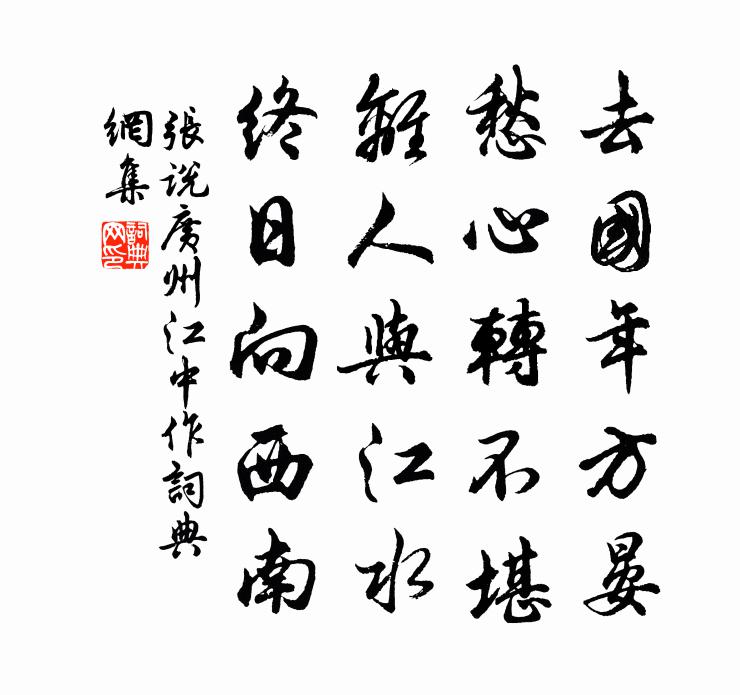 去國年方晏
愁心轉不堪
離人與江水
終日向西南
張說廣州江中作詞典
網集
詞典
网印